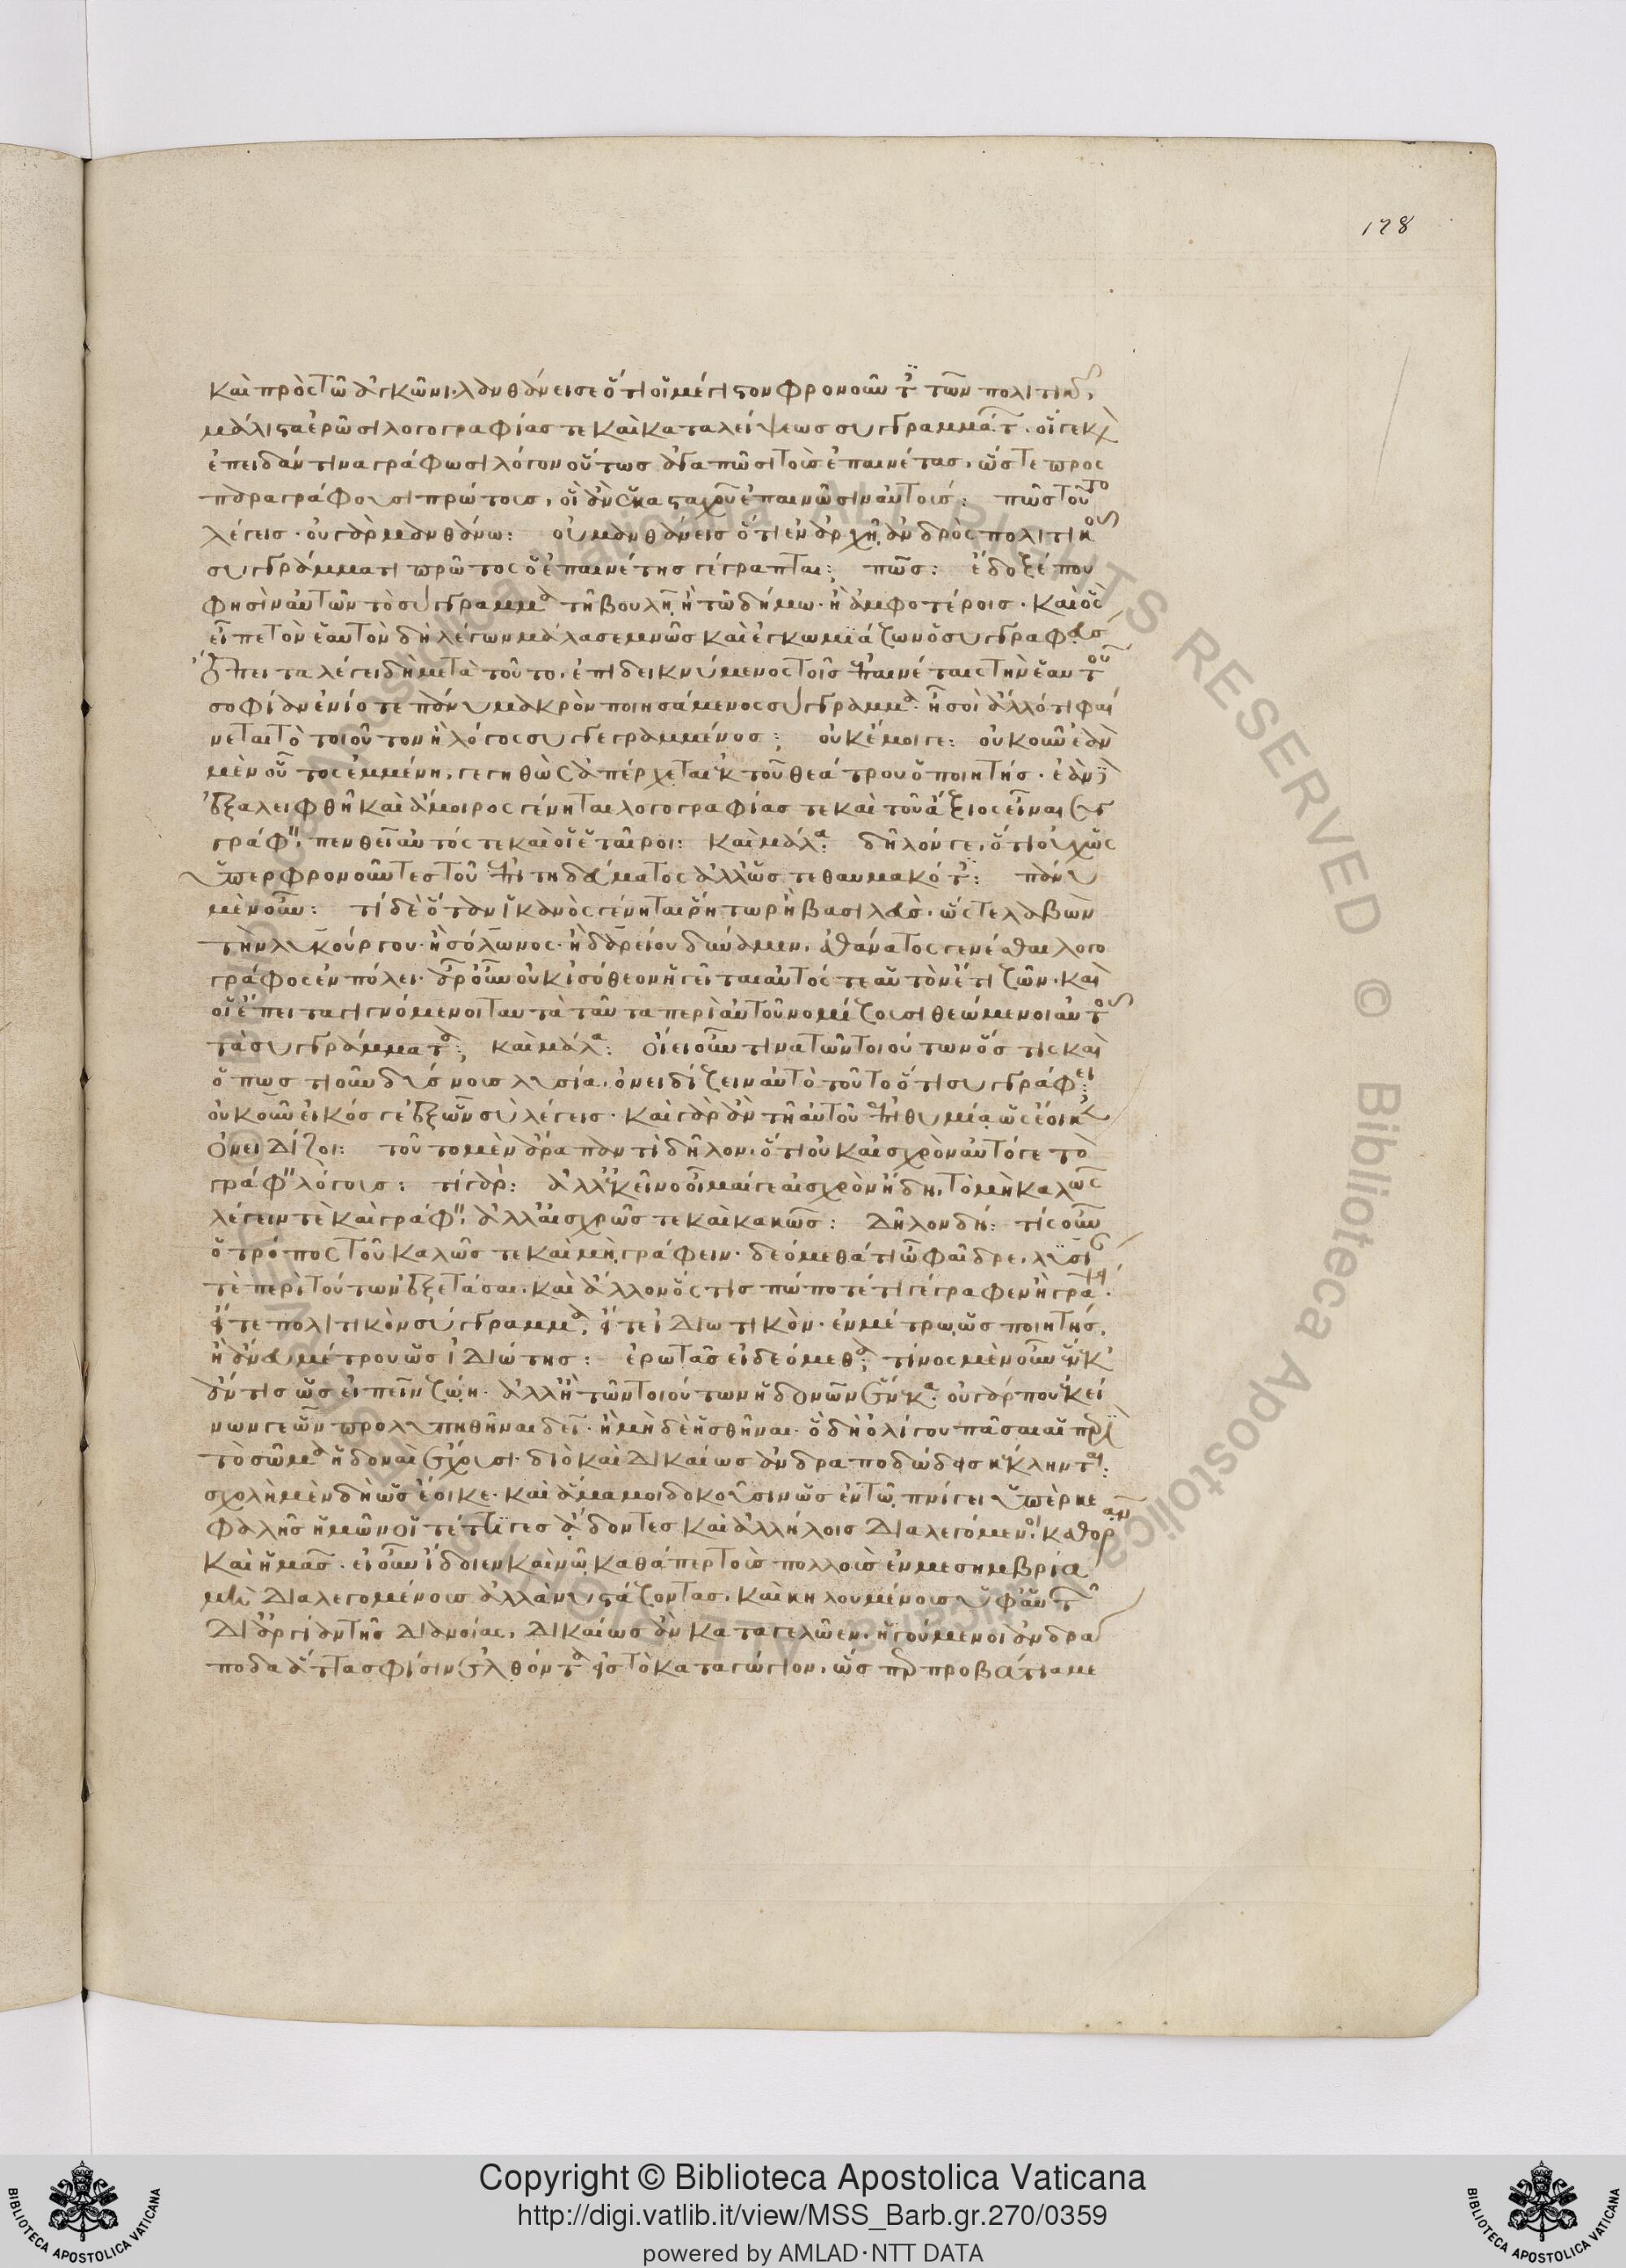 178
καὶ πρὸς τῶ ἀγκῶνι· λανθάνει σε ὅτι οἱ μέγιστον φρονοῦντες τῶν πολιτικῶν
μάλιστα ἐρῶσι λογογραφίας τε καὶ καταλείψεως συγγραμμάτων. οἵ γε καὶ
ἐπειδάν τινα γράφωσι λόγον οὕτως ἀγαπῶσι τοὺς ἐπαινέτας, ὥστε προς
παραγράφουσι πρώτους, οἳ ἂν ἑκασταχοῦ ἐπαινῶσιν αὐτούς: πῶς τοῦτο
λέγεις· οὐ γὰρ μανθάνω: οὐ μανθάνεις ὅτι ἐν ἀρχῇ ἀνδρὸς πολιτικοῦ
συγγράμματι πρῶτος ὁ ἐπαινέτης γέγραπται; πῶς: ἔδοξέ που
φησὶν αὐτῶν τὸ σύγγραμμα τῆ βουλῆ, ἢ τῶ δήμω· ἢ ἀμφοτέροις· καὶ ὃς
εἶπε τὸν ἑαυτὸν δὴ λέγων μάλα σεμνῶς καὶ ἐγκωμιάζων ὁ συγγραφεύς
ἔπειτα λέγει δὴ μετὰ τοῦτο, ἐπιδεικνύμενος τοῖς ἐπαινέταις τὴν ἑαυτοῦ
σοφίαν ἐνίοτε πάνυ μακρὸν ποιησάμενος σύγγραμμα· ἤ σοὶ ἄλλό τι φαί
νεται τὸ τοιοῦτον ἢ λόγος συγγεγραμμένος; οὐκ ἔμοιγε: οὐκοῦν ἐὰν
μὲν οὗτος ἐμμένη, γεγηθὼς ἀπέρχεται ἐκ τοῦ θεάτρου ὁ ποιητής· ἐὰν δὲ
ἐξαλειφθῆ καὶ ἄμοιρος γένηται λογογραφίας τε καὶ τοῦ ἄξιος εἶναι συγ
γράφειν, πενθεῖ αὐτός τε καὶ οἱ ἑταῖροι: καὶ μάλα: δῆλόν γε, ὅτι οὐχ ὡς
ὑπερφρονοῦντες τοῦ ἐπιτηδεύματος ἀλλ' ὡς τεθαυμακότες: πάνυ
μὲν οὖν: τί δὲ ὅταν ἱκανὸς γένηται ῥήτωρ ἢ βασιλεὺς, ὥστε λαβὼν
τὴν λυκούργου· ἢ σόλωνος· ἢ δαρείου δύναμιν, ἀθάνατος γενέσθαι λογο
γράφος ἐν πόλει· ἆρ' οὖν οὐκ ἰσόθεον ἡγεῖται αὐτός τε αὑτὸν ἔτι ζῶν· καὶ
οἱ ἔπειτα γιγνόμενοι ταυτὰ ταῦτα περὶ αὐτοῦ νομίζουσι θεώμενοι αὐτοῦ
τὰ συγγράμματα; καὶ μάλα: οἴει οὖν τινα τῶν τοιούτων ὅστις καὶ
ὅπως τιοῦν δύσνους λυσία, ὀνειδίζειν αὐτὸ τοῦτο ὅτι συγγράφει;
οὐκοῦν εἰκός γε ἐξ ὧν σὺ λέγεις· καὶ γὰρ ἂν τῆ αὑτοῦ ἐπιθυμία, ὡς ἔοικεν
ὀνειδίζοι: τοῦτο μὲν ἄρα παντὶ δῆλον, ὅτι οὐκ αἰσχρὸν αὐτό γε τὸ
γράφειν λόγους: τί γὰρ: ἀλλ' ἐκεῖνο οἶμαί γε αἰσχρὸν ἤδη, τὸ μὴ καλῶς
λέγειν τὲ καὶ γράφειν, ἀλλ' αἰσχρῶς τε καὶ κακῶς: δῆλον δή: τίς οὖν
ὁ τρόπος τοῦ καλῶς τε καὶ μὴ γράφειν· δεόμεθά τι ὦ φαῖδρε, λυσίαν
τὲ περὶ τούτων ἐξετάσαι, καὶ ἄλλον ὅστις πώποτέ τι γέγραφεν ἢ γράψει·
εἴτε πολιτικὸν σύγγραμμα, εἴτε ἰδιωτικὸν· ἐν μέτρω, ὡς ποιητής,
ἢ ἄνευ μέτρου ὡς ἰδιώτης: ἐρωτᾶς εἰ δεόμεθα; τίνος μὲν οὖν ἕνεκ'
ἄν τις ὡς εἰπεῖν ζώη· ἀλλ' ἢ τῶν τοιούτων ἡδονῶν ἕνεκα· οὐ γάρ που ἐκεί
νων γε ὧν προλυπηθῆναι δεῖ· ἢ μὴ δὲ ἡσθῆναι· ὃ δὴ ὀλίγου πᾶσαι αἱ περὶ
τὸ σῶμα ἡδοναὶ ἔχουσι· διὸ καὶ δικαίως ἀνδραποδώδεις κέκληνται:
σχολὴ μὲν δὴ ὡς ἔοικε· καὶ ἅμα μοι δοκοῦσιν ὡς ἐν τῶ πνίγει ὑπὲρ κε
φαλῆς ἡμῶν οἱ τέττιγες ᾄδοντες καὶ ἀλλήλοις διαλεγόμενοι καθορᾶν
καὶ ἡμᾶς· εἰ οὖν ἴδοιεν καὶ νῶ καθάπερ τοὺς πολλοὺς ἐν μεσημβρία
μὴ διαλεγομένους ἀλλὰ νυστάζοντας, καὶ κηλουμένους ὑφ' αὑτῶν
δι' ἀργίαν τῆς διανοίας, δικαίως ἂν καταγελῶεν, ἡγούμενοι ἀνδρά
ποδα ἄττα σφίσιν ἐλθόντα εἰς τὸ καταγώγιον, ὥσπερ προβάτια με
Copyright © Biblioteca Apostolica Vaticana
http://digi.vatlib.it/view/MSS_Barb.gr.270/0359
powered by AMLAD·NTT DATA
BIBLIOTECA APOSTOLICA VATICANA
BIBLIOTECA APOSTOLICA VATICANA